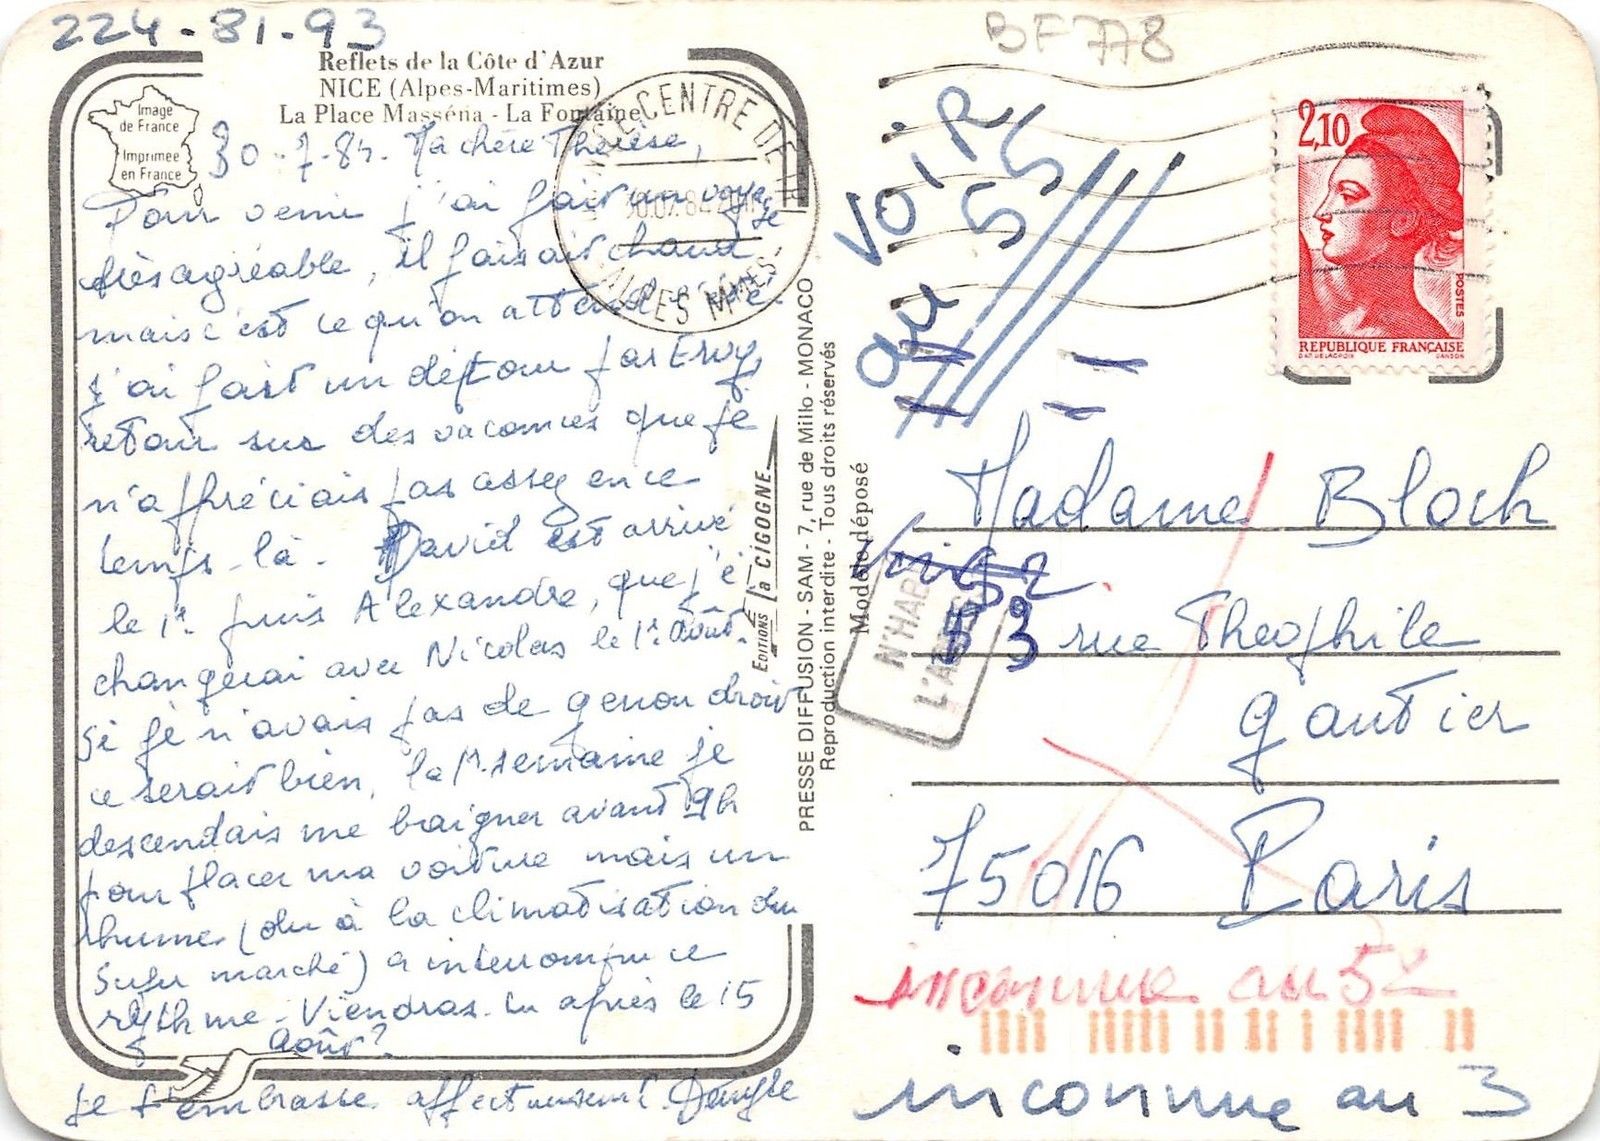 224-81-93
BF 778
Reflets de la Côte d'Azur
NICE (Alpes-Maritimes)
La Place Masséna - La Fontaine
Image
de France
Imprimée
en France
30-7-84. Ma chère Thérèse,
Pour venir j'ai fait un voyage
très agréable, il faisait chaud
mais c'est ce qu'on attend
j'ai fait un détour par Ervy,
retour sur des vacances que je
n'appréciais pas assez en ce
temps-là. David est arrivé
le 1er puis Alexandre, que j'é
changerai avec Nicolas le 1er août.
Si je n'avais pas de genou droit
ce serait bien, la 1e semaine je
descendais me baigner avant 9h
pour placer ma voiture mais un
rhume (du à la climatisation du
super marché) a interrompu ce
rythme. Viendras-tu après le 15
août?
Je t'embrasse affectueusement
CENTRE DE TRI
30.07.84
ALPES MMES
EDITIONS la CIGOGNE
PRESSE DIFFUSION - SAM - 7, rue de Millo - MONACO
Reproduction interdite - Tous droits réservés
Modèle déposé
VOIR
au 55
2,10
POSTES
REPUBLIQUE FRANÇAISE
D'AP. DELACROIX GANDON
Madame Bloch
N'HABITE
53 rue Theophile
gautier
75016 Paris
inconnue au 52
inconnue au 3